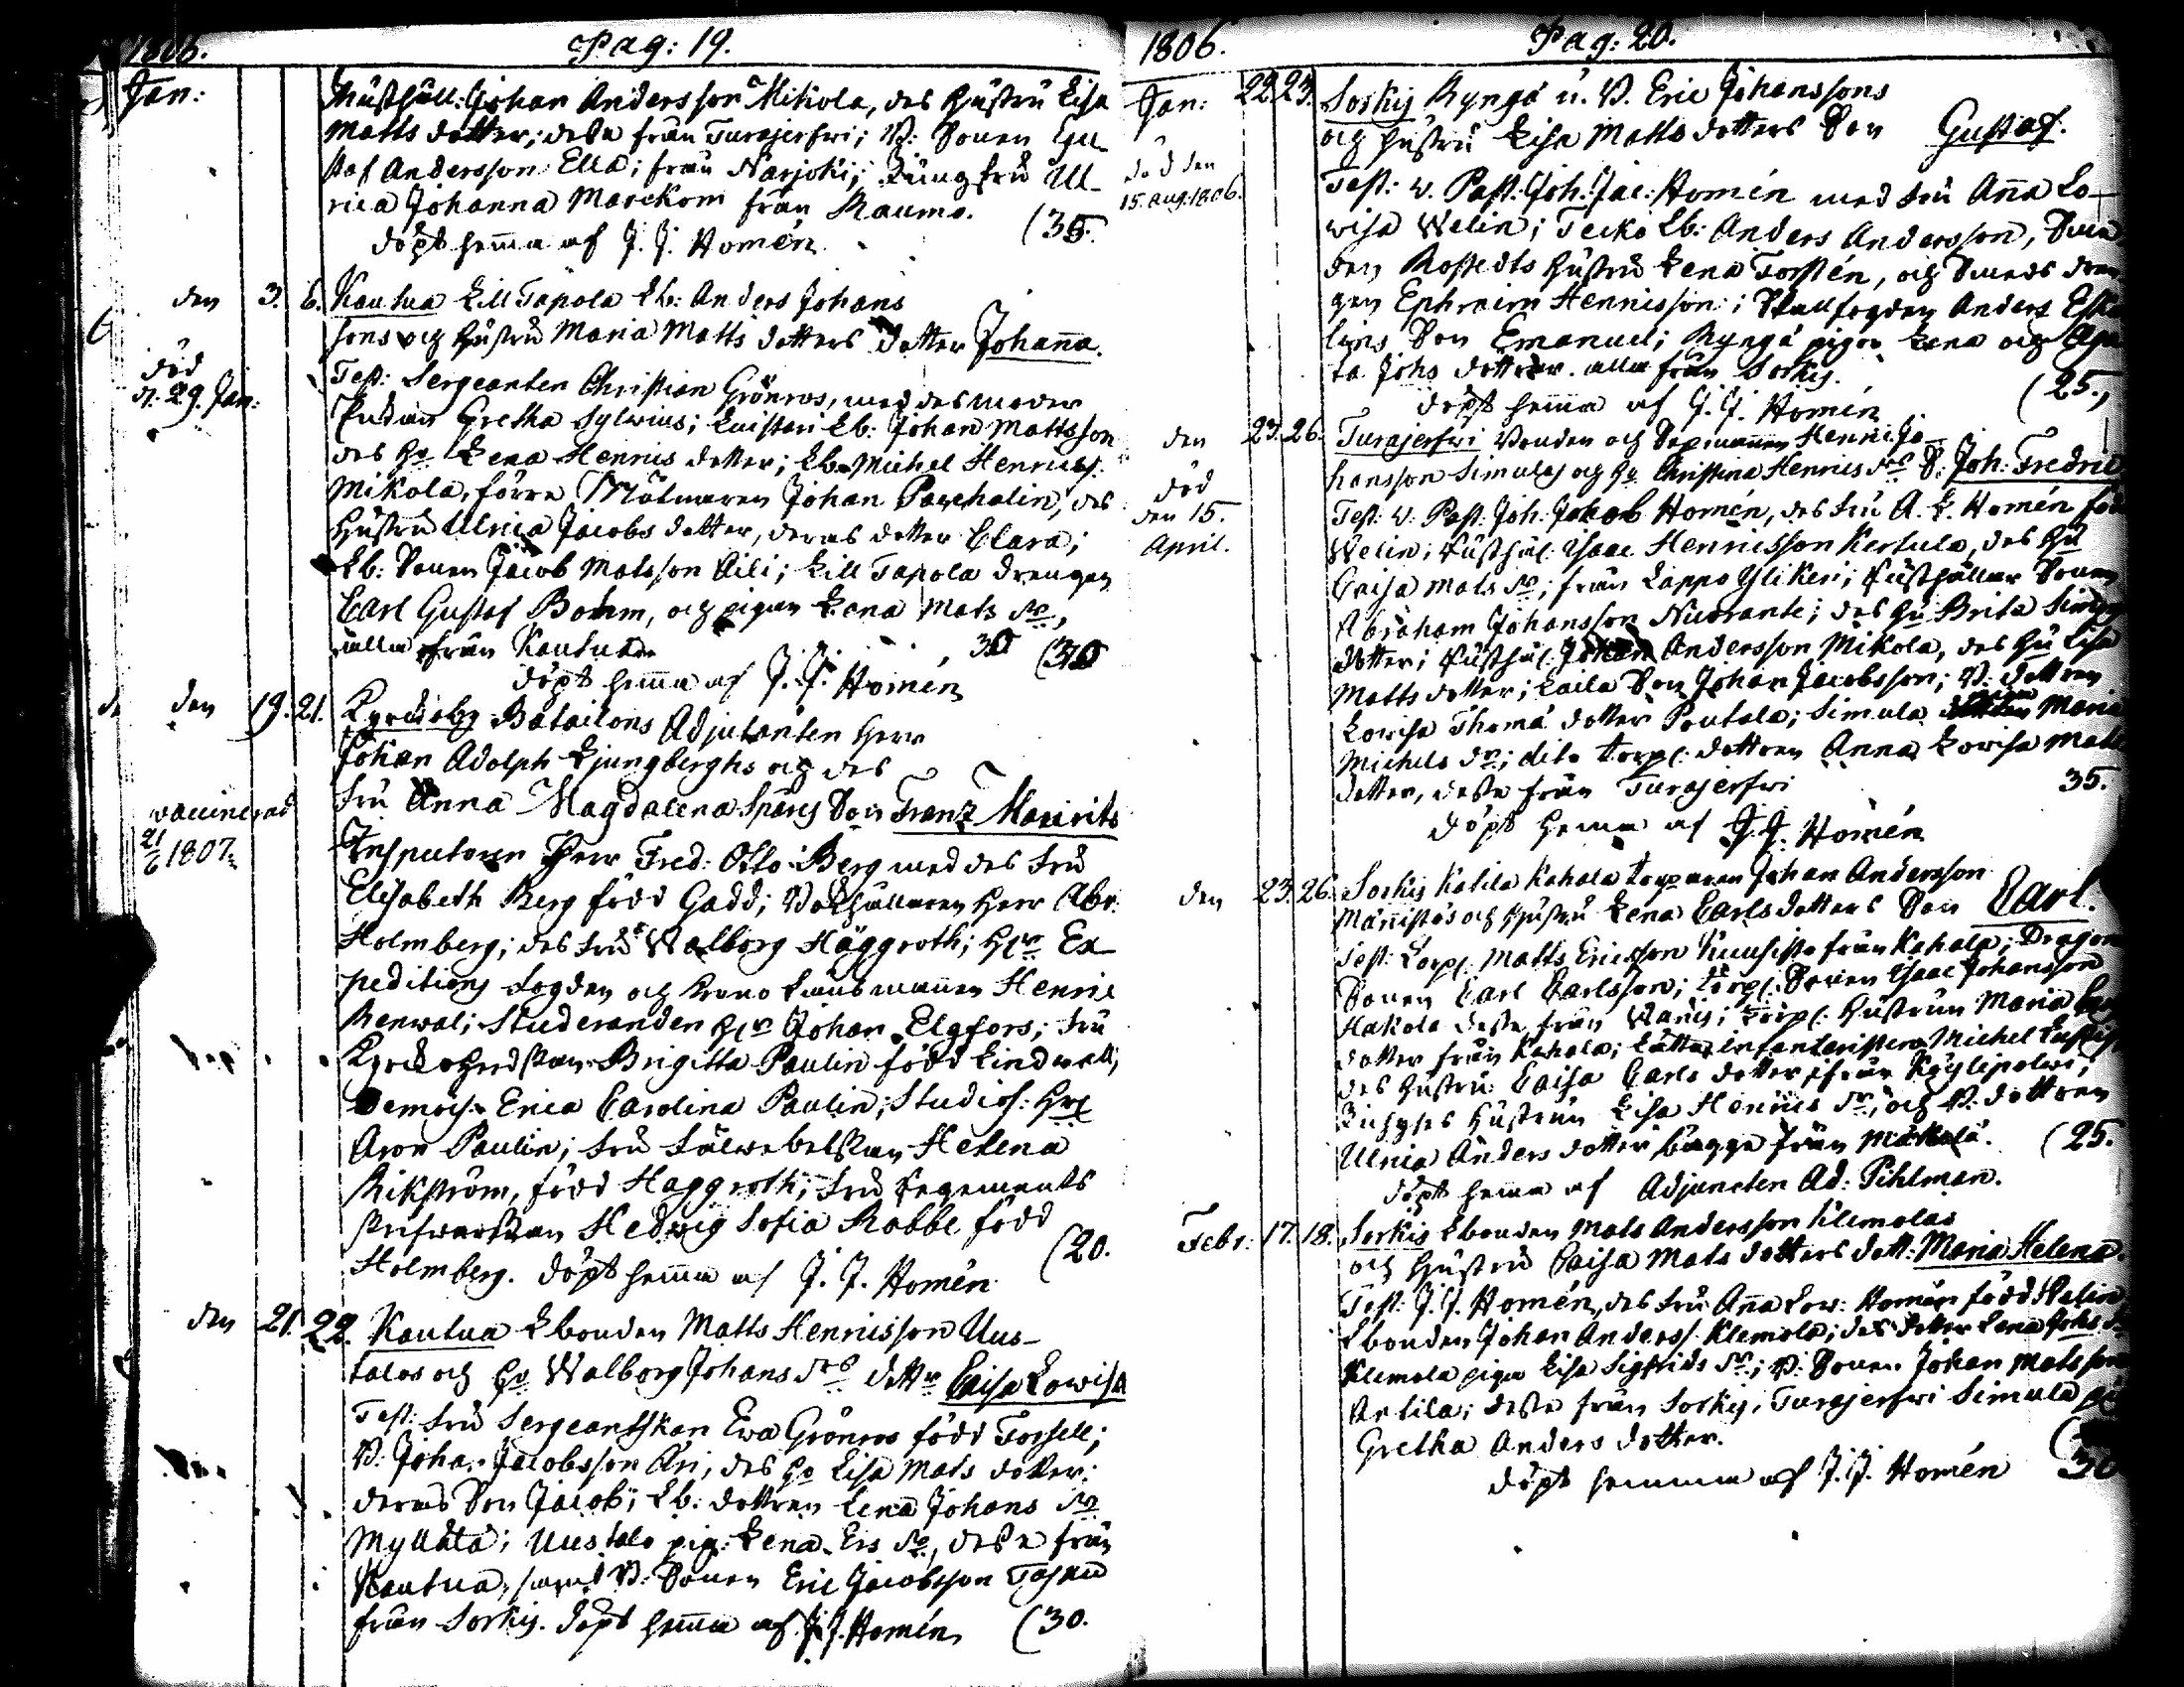 1806. Pag: 19.
Jan:
Rusthåll: Johan Andersson Mikola, des hustru Lisa
Matts dotter; desse från Turajerfwi; B: Sonen Gu-
staf Andersson Ella; från Narjoki; Jungfru Ul-
rica Johanna Marckom från Raumo. (35.
döpt hemma af J. J. Homén
den 3. 6. Kautua Lill Tapola Lb: Anders Johans
sons och hustru Maria Matts dotters dotter Johanna.
död
d: 29. Jan:
Test: Sergeanten Christian Grönros, med des moder
Gretha Sylwius; Luistari Lb: Johan Mattsson
des Hu Lena Henrics dotter; Lb. Michel Henrics
Mikola, förre Johan Paschalin, des
hustru Ulrica Jacobs dotter, deras dotter Clara;
Lb: Sonen Jacob Matsson Äili; Lill Tapola drengen
Carl Gustaf Bohm, och pigan Lena Mats dr,
alla från Kautua 30 (30
döpt hemma af J. J. Homén
den 19. 21. Kyrckoby Batailons Adjutanten Herr
Johan Adolph Ljungberghs och des
Fru Anna Magdalena Spåres Son Franz Mauritz
vaccinerad
21/6 1807.
Inspectoren Herr Fred: Otto Berg med des Fru
Elisabeth Berg född Gadd; Bokhållaren Herr Abr:
Holmberg; des Fru Walborg Häggroth; Hr Ex-
peditions Fogden och Krono Länsmannen Henric
Renwal; Studeranden Hr Johan Elgfors; Fru
Kyrckoherdskan Brigitta Paulin född Lindwall;
Demois: Erica Carolina Paulin; Studios: Hr
Aron Paulin; Fru Fältwebelskan Helena
Rikström, född Haggroth; Fru Regements
skrifwarskan Hedwig Sofia Robbe född
Holmberg. döpt hemma af J. J. Homén (20.
den 21. 22. Kautua Lbonden Matts Henricsson Uus-
talos och Hu Walborg Johans drs dottr Caisa Lowisa
Test: Fru Sergeantskan Ewa Grönros född Forsell;
B: Johan Jacobsson Äri, des Hu Lisa Mats dotter;
deras Son Jacob; Lb: dottren Lena Johans dr
Myllälä; Uustalo pig: Lena Ers dr, desse från
Kautua, samt B: Sonen Eric Jacobsson Tasku
från Sorkis. döpt hemma af J. J. Homén (30.
1806. Pag: 20.
Jan: 22. 23. Sorkis Ryngö u. B. Eric Johanssons
och hustru Lisa Matts dotters Son Gustaf.
död den
15. aug. 1806.
Test: v. Past: Joh: Jac: Homén med Fru Anna Lo-
wisa Welin; Teiko Lb: Anders Andersson,
Rostedts hustru Lena Forstén, och Smeds dren
gen Ephraim Henricsson; Skallfogden Anders
Son Emanuel; Ryngö pigor Lena och
ta Johs döttrar. alla från Sorkis. (25.
döpt hemma af J. J. Homén
den 23. 26. Turajerfwi Bonden och Sexmannen Henric Jo-
hansson Simulas och Hu Christina Henrics drs S: Joh: Fredric
död
den 15.
April.
Test: v: Past: Joh: Jacob Homén, des Fru A. L. Homén född
Welin; Rusthål: Isaac Henricsson Kertula, des Hu
Caisa Mats dr; från Lappo Ylikeri; Rusthållar Sonen
Abraham Johansson Nuorante; des Hu Brita
dotter; Rusthål: Johan Andersson Mikola, des Hu Lisa
Matts dotter; Laila Son Johan Jacobsson; B: dottren
Lowisa Thomæ dotter Poutala; Simula pigan Maria
Michels dr; dito torp: dottren Anna Lowisa Matts
dotter, desse från Turajerfwi 35.
döpt hemma af J. J. Homén
den 23. 26. Sorkis Katila Kahala torparen Johan Andersson
Männistös och hustru Lena Carls dotters Son Carl.
Test: Torp: Matts Ericsson Kuusisto från Kahala; Dragon
Sonen Carl Carlsson; torp: Sonen Isaac Johansson
Hakola desse från Wanis; torp: hustrun Maria
dotter från Kahala; Lätta infanteristen Michel
des hustru Caisa Carls dotter, från Köylipolwi;
hustrun Lisa Henrics dr; och B. dottren
Ulrica Anders dotter bägge från Mäkelä. (25.
döpt hemma af Adjuncten Ad: Pihlman.
Febr: 17. 18. Sorkis Lbonden Mats Andersson Klemolas
och hustru Caisa Mats dotters dott: Maria Helena.
Test: J. J. Homén, des Fru Anna Low: Homén född Welin
Lbonden Johan Anderss: Klemola; des dotter Lena Johs dr
Klemola pigan Lisa Sigfrids dr; B: Sonen Johan Matsson
Antila; desse från Sorkis, Turajerfwi Simula
Gretha Anders dotter.
döpt hemma af J. J. Homén (30